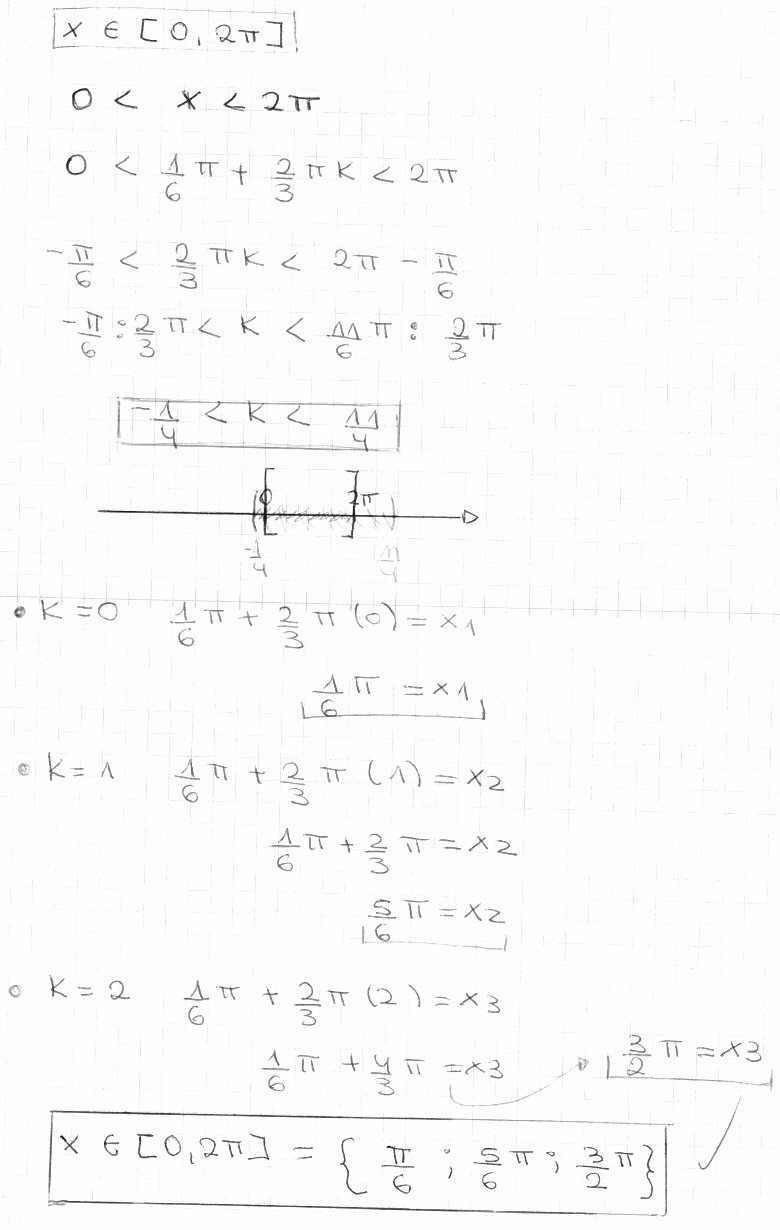 x ∈ [0, 2π]
0 < x < 2π
0 < 1/6 π + 2/3 π K < 2π
-π/6 < 2/3 π K < 2π - π/6
-π/6 : 2/3 π < K < 11/6 π : 2/3 π
-1/4 < K < 11/4
0 2π
-1/4 11/4
• K = 0 1/6 π + 2/3 π (0) = x1
1/6 π = x1
• K = 1 1/6 π + 2/3 π (1) = x2
1/6 π + 2/3 π = x2
5/6 π = x2
• K = 2 1/6 π + 2/3 π (2) = x3
1/6 π + 4/3 π = x3 → 3/2 π = x3
x ∈ [0, 2π] = { π/6 ; 5/6 π ; 3/2 π }